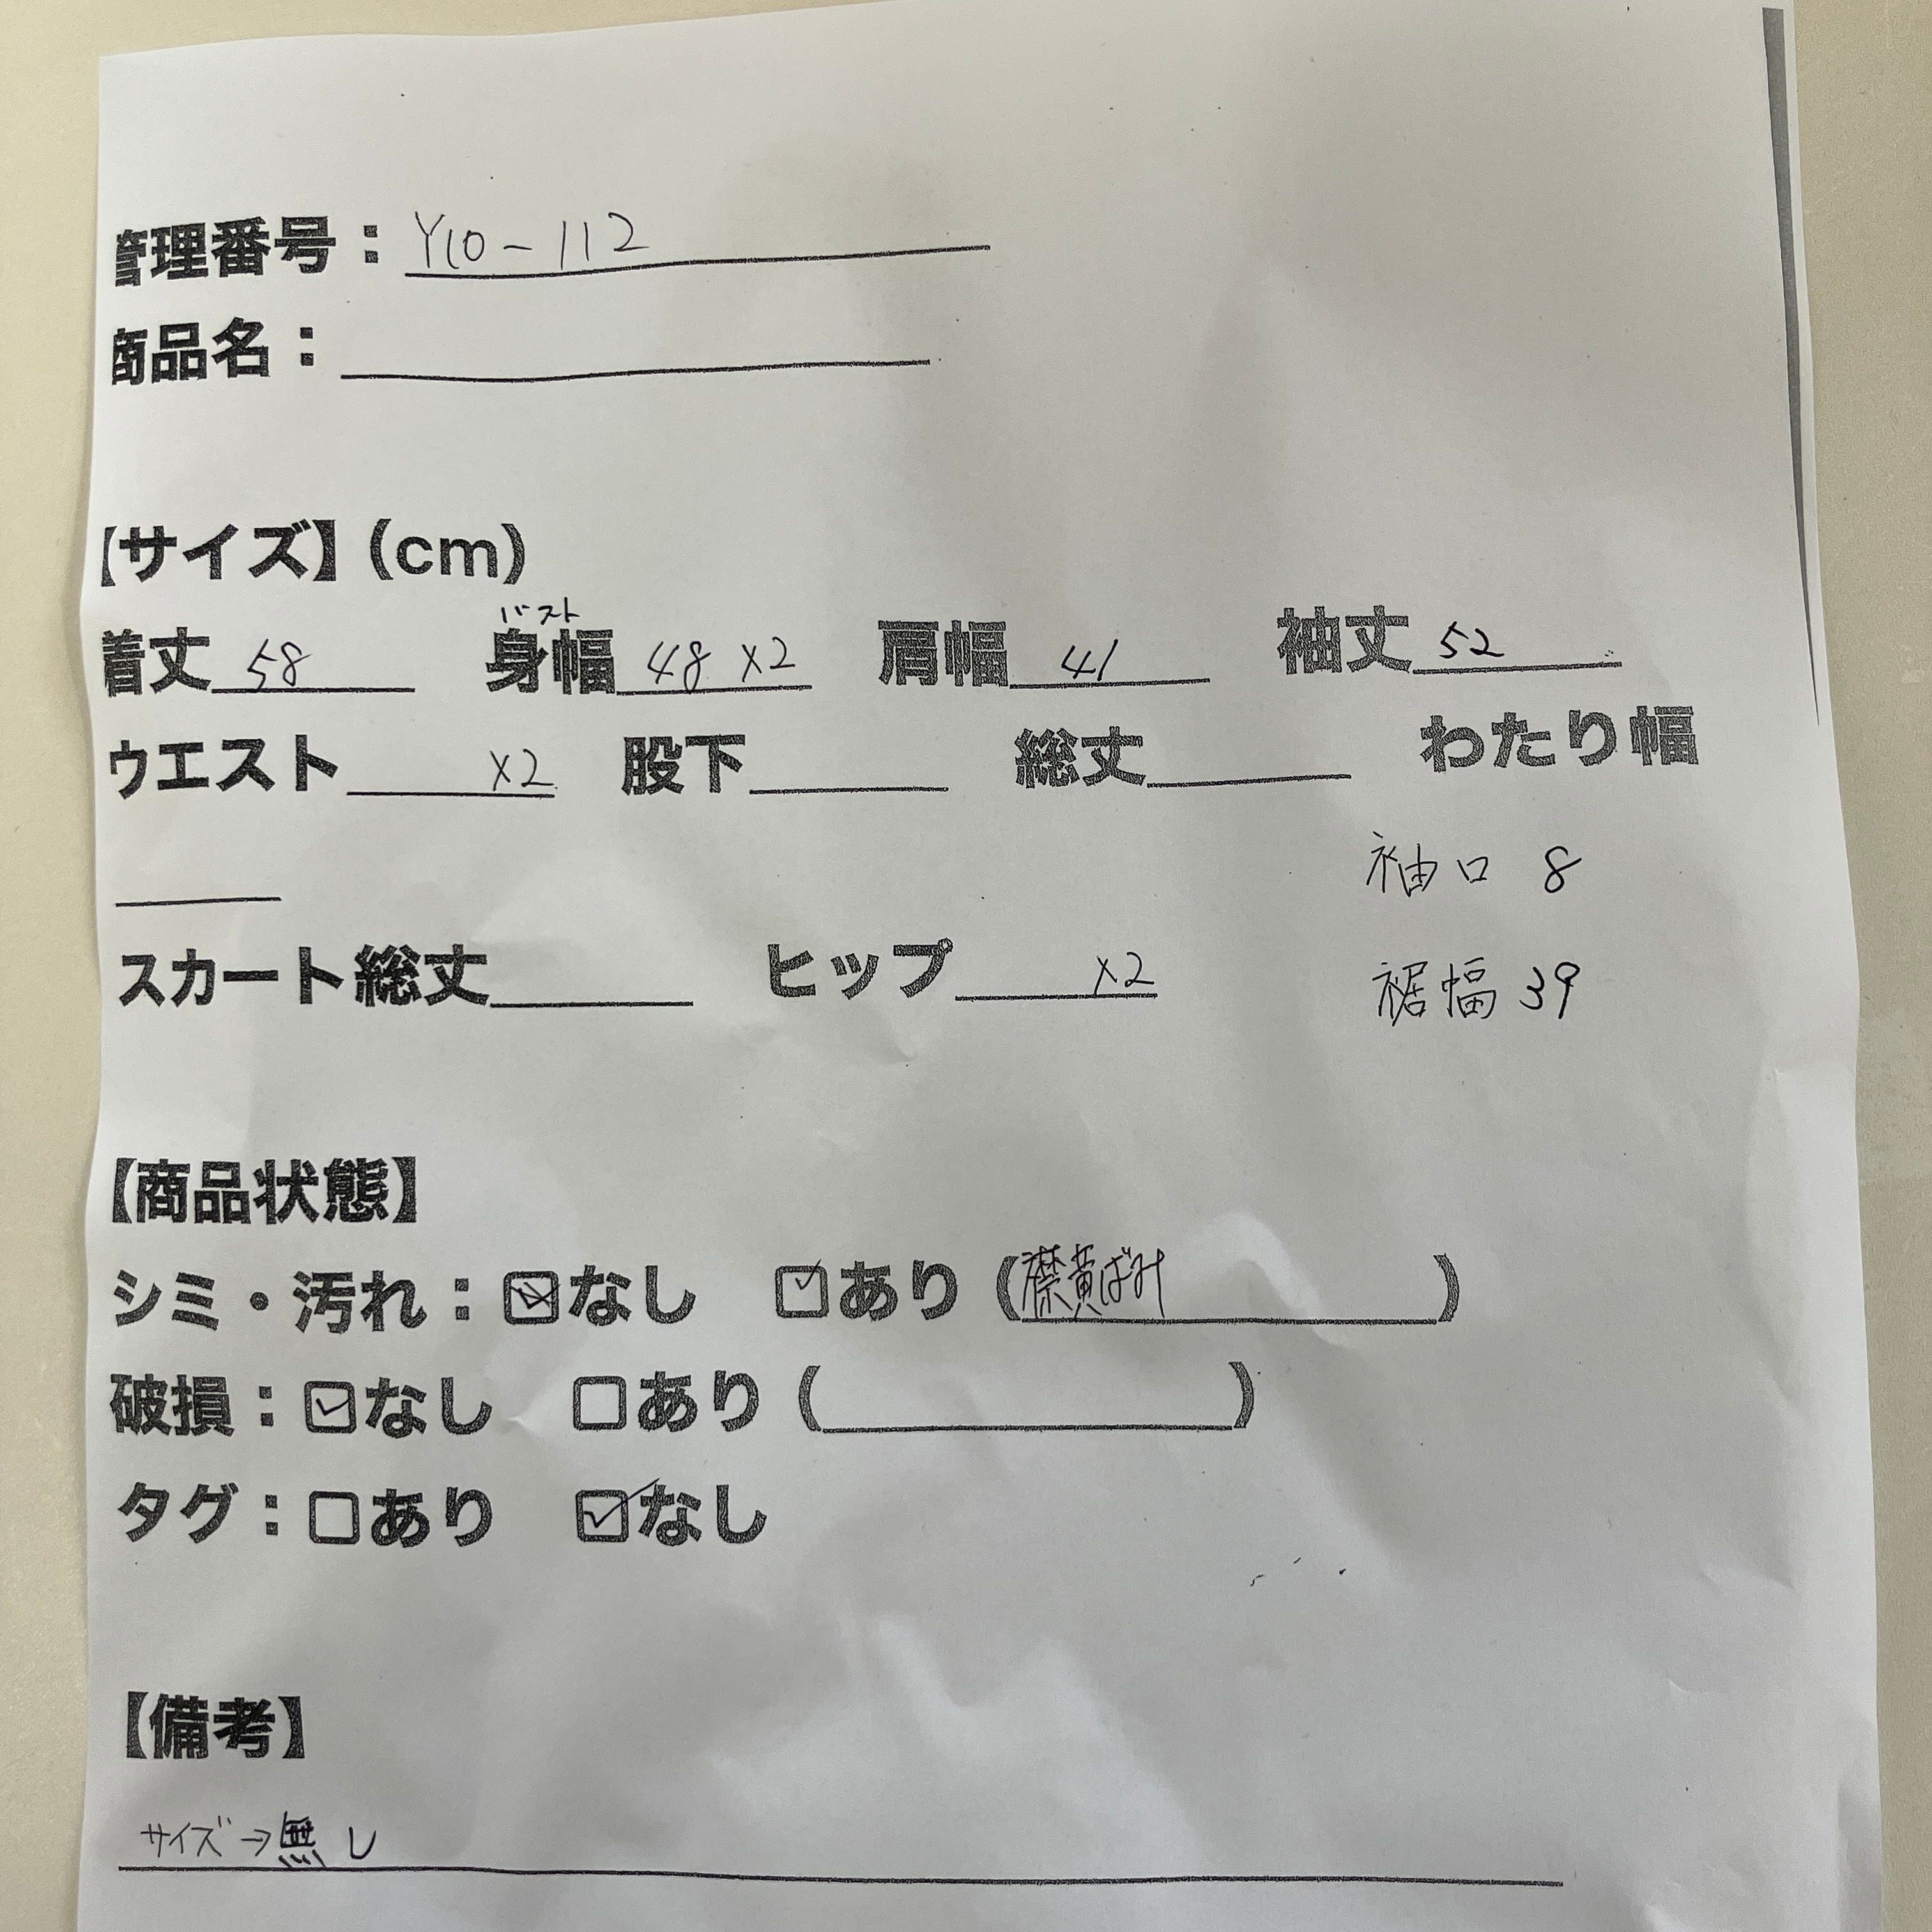 管理番号：Y10-112
商品名：
【サイズ】(cm)
バスト
着丈 58 身幅 48 ×2 肩幅 41 袖丈 52
ウエスト ×2 股下 総丈 わたり幅
袖口 8
スカート総丈 ヒップ ×2
裾幅 39
【商品状態】
シミ・汚れ：☑なし ☑あり（襟黄ばみ）
破損：☑なし □あり（ ）
タグ：□あり ☑なし
【備考】
サイズ→無し